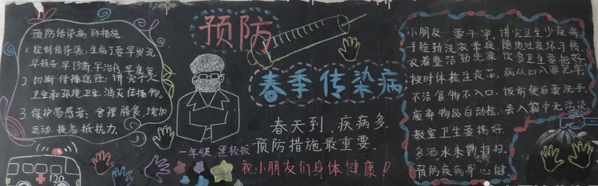 预防传染病的措施
1 控制传染源:生病了要早发现,
早报告,早诊断,早治疗,早隔离
2 切断传播途径:讲究个人
卫生和环境卫生,消灭传播物。
3 保护易感者:合理膳食,增加
运动,提高抵抗力。
120
预防
春季传染病
春天到,疾病多,
预防措施最重要。
一年级 黑板报
祝小朋友们身体健康!
小朋友 要干净,讲究卫生少疾病
手脸勤洗
衣着整洁勤洗澡 饮食卫生要把好
按时体检注疫苗, 病从口入要忌牢
不洁食物不入口, 饭前便后要洗手
废弃物品自动捡, 丢入箱中无污染
教室卫生要搞好,
多喝水来野外
预防疾病身心健